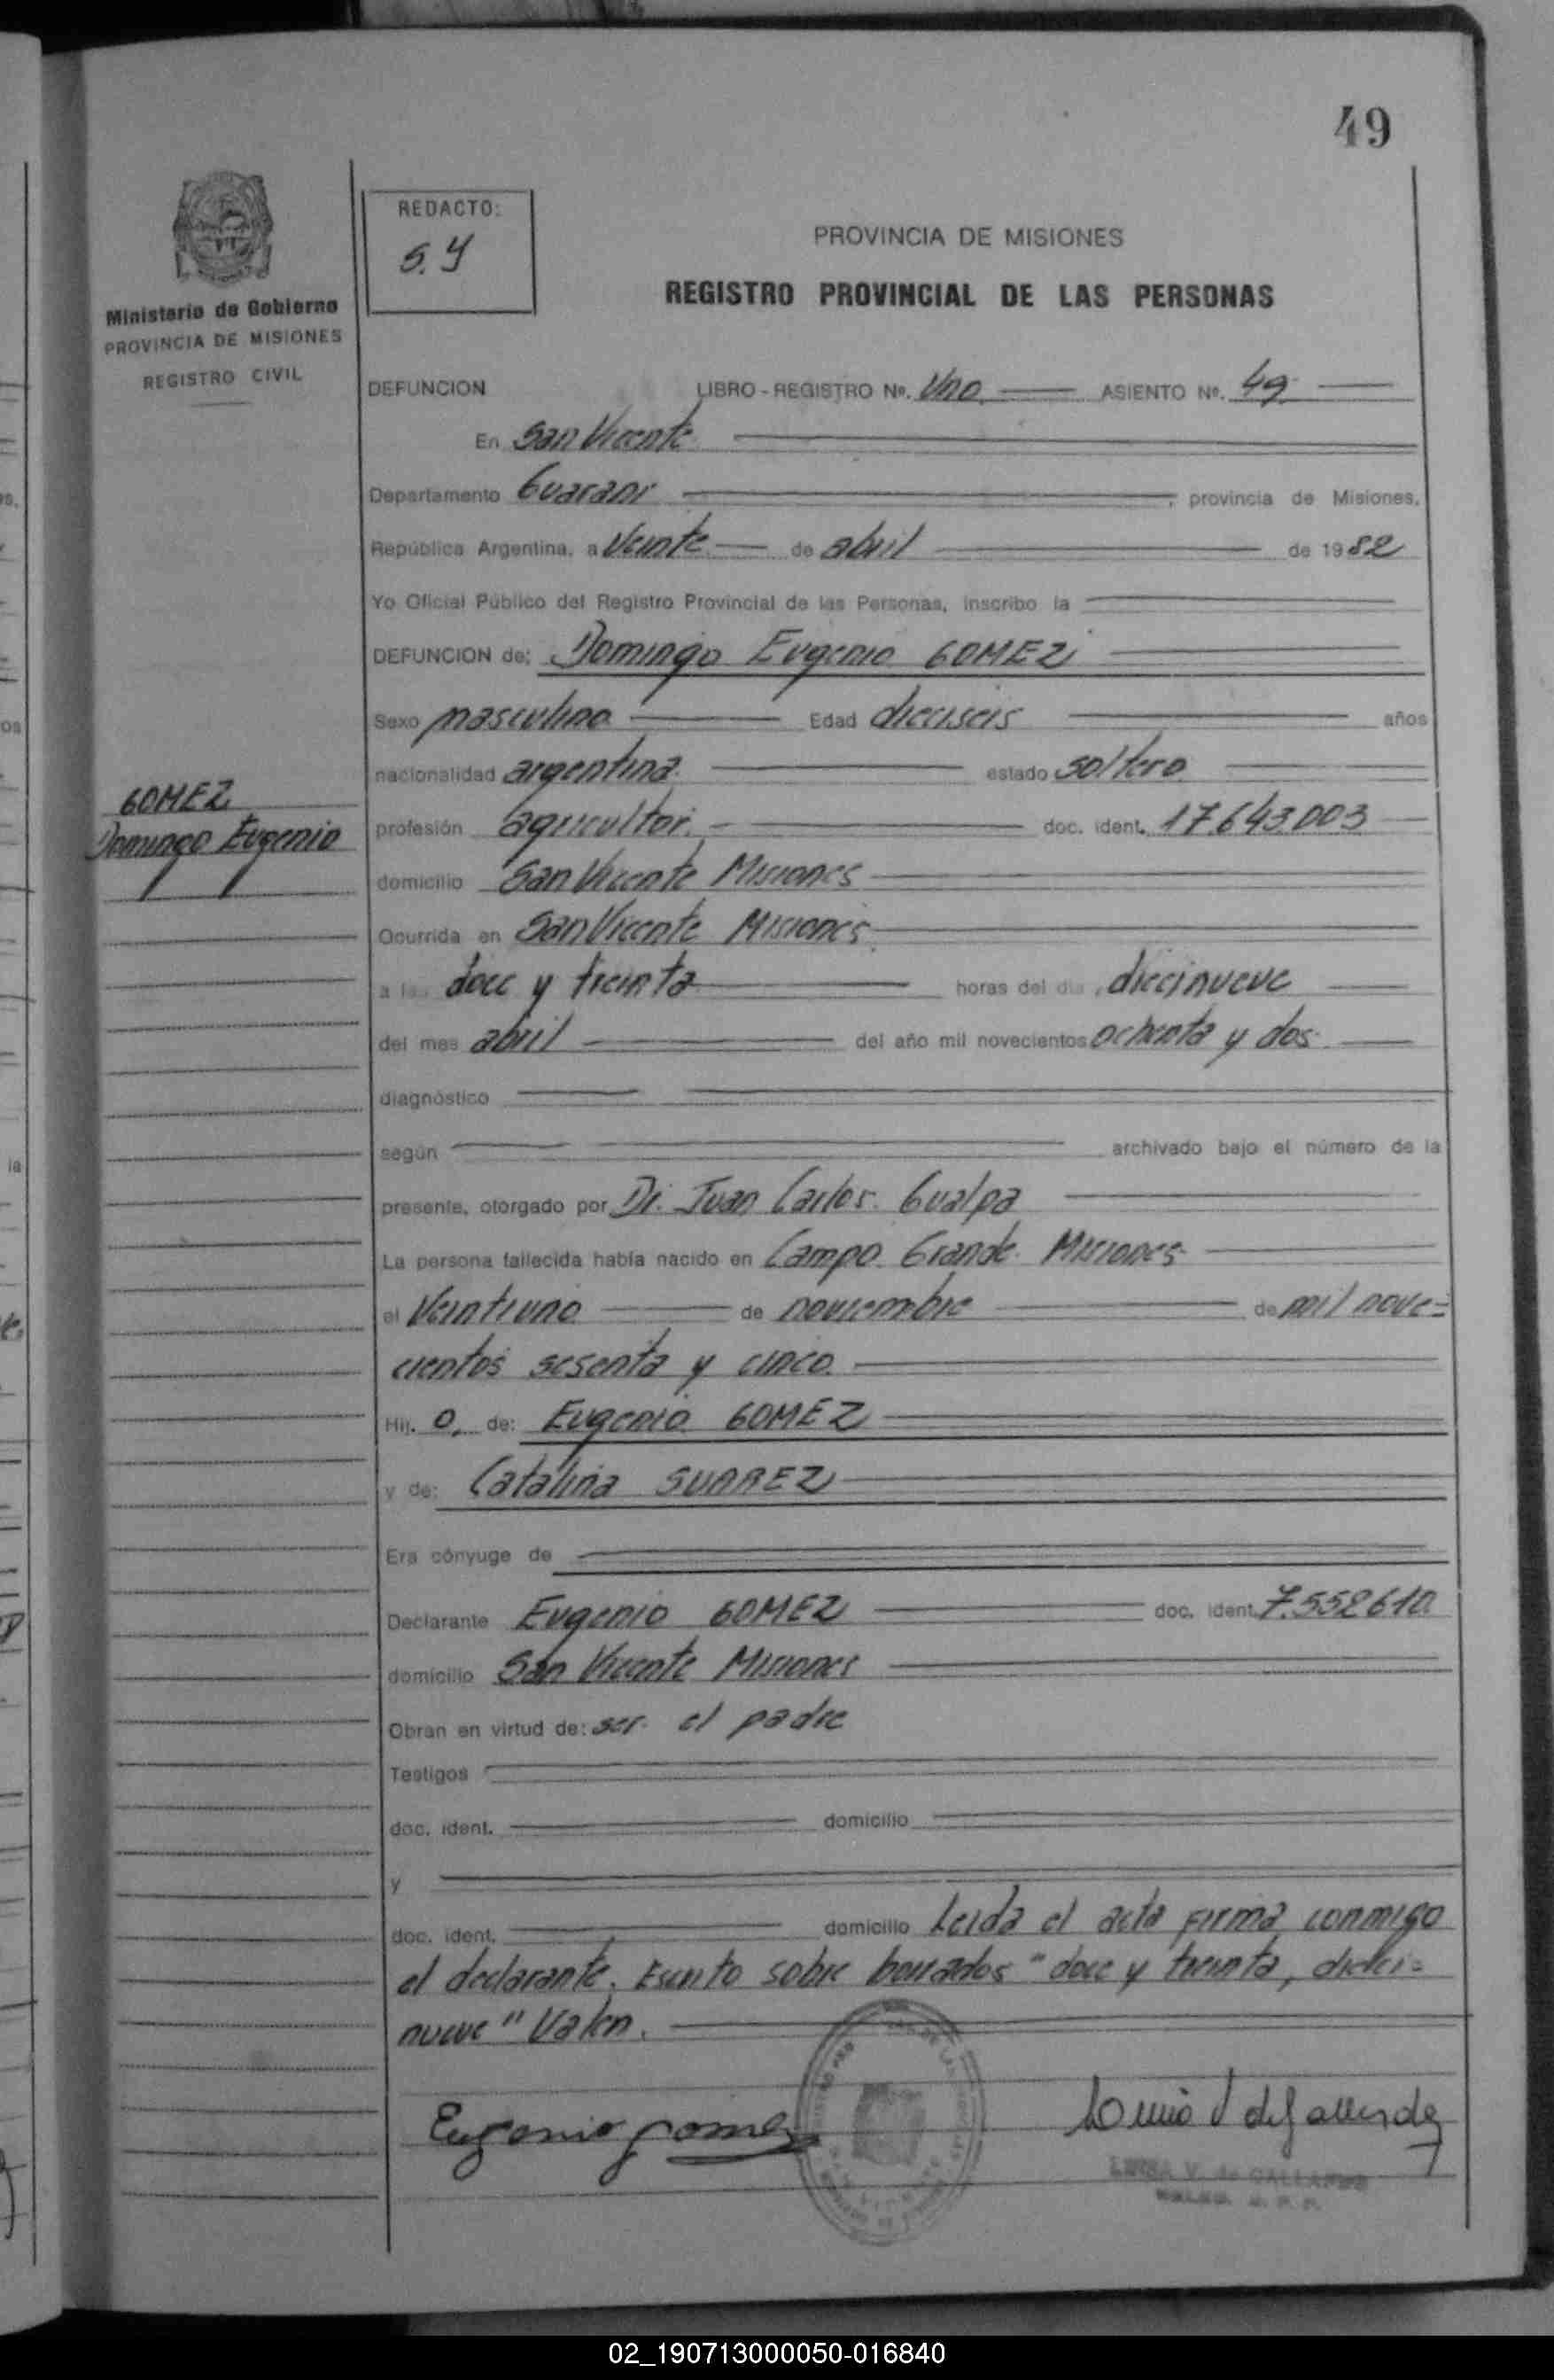 49
REDACTO:
S. Y
Ministerio de Gobierno
PROVINCIA DE MISIONES
REGISTRO CIVIL
PROVINCIA DE MISIONES
REGISTRO PROVINCIAL DE LAS PERSONAS
DEFUNCION LIBRO - REGISTRO Nº. Uno ASIENTO Nº. 49
En San Vicente
Departamento Guarani, provincia de Misiones,
República Argentina, a Veinte de abril de 1982
Yo Oficial Público del Registro Provincial de las Personas, inscribo la
DEFUNCION de: Domingo Eugenio GOMEZ
Sexo masculino Edad dieciseis años
nacionalidad argentina estado soltero
GOMEZ
Domingo Eugenio
profesión agricultor. doc. ident. 17.643.003
domicilio San Vicente Misiones
Ocurrida en San Vicente Misiones
a las doce y treinta horas del día, diecinueve
del mes abril del año mil novecientos ochenta y dos
diagnóstico
según archivado bajo el número de la
presente, otorgado por Dr. Juan Carlos Gualpa
La persona fallecida había nacido en Campo Grande Misiones
el Veintiuno de noviembre de mil nove=
cientos sesenta y cinco.
Hij. o, de: Eugenio GOMEZ
y de: Catalina SUAREZ
Era cónyuge de
Declarante Eugenio GOMEZ doc. ident. 7.552610
domicilio San Vicente Misiones
Obran en virtud de: ser el padre
Testigos
doc. ident. domicilio
y
doc. ident. domicilio Leida el acta firma conmigo
el declarante. Escrito sobre borrados "doce y treinta, dieci=
nueve" Valen.
Eugenio gomez
V. de
02_190713000050-016840